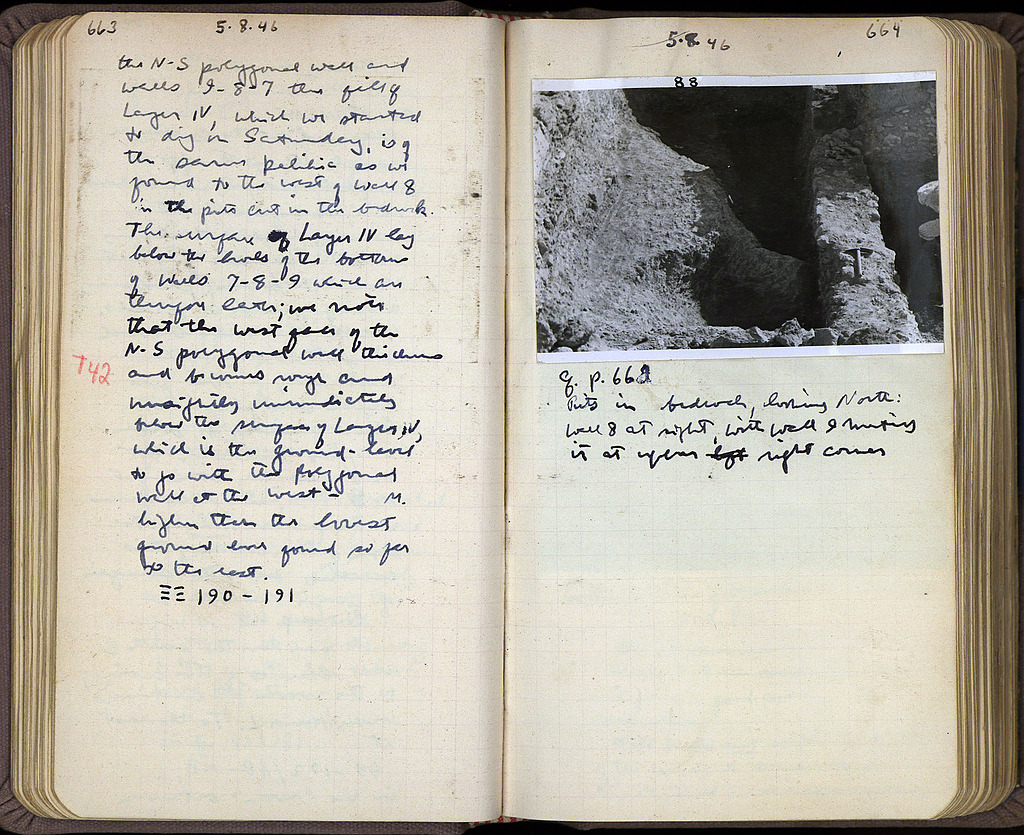 663
5·8·46
the N-S polygonal wall and
walls 9-8-7 the fill of
Layer IV, which we started
to dig on Saturday, is of
the same as we
found to the west of wall 8
in the pits cut in the bedrock.
The surface of Layer IV lay
below the levels of the bottoms
of walls 7-8-9 which are
therefore later; we note
that the west face of the
N-S polygonal wall thickens
T42
and becomes rough and
unsightly immediately
below the surface of Layer IV,
which is the ground-level
to go with the Polygonal
wall at the west - M.
higher than the lowest
ground level found so far
to the east.
ΞΞ 190-191
5·8·46
664
88
cf. p. 662
Pits in bedrock, looking North:
wall 8 at right, with wall 9 meeting
it at upper left right corner